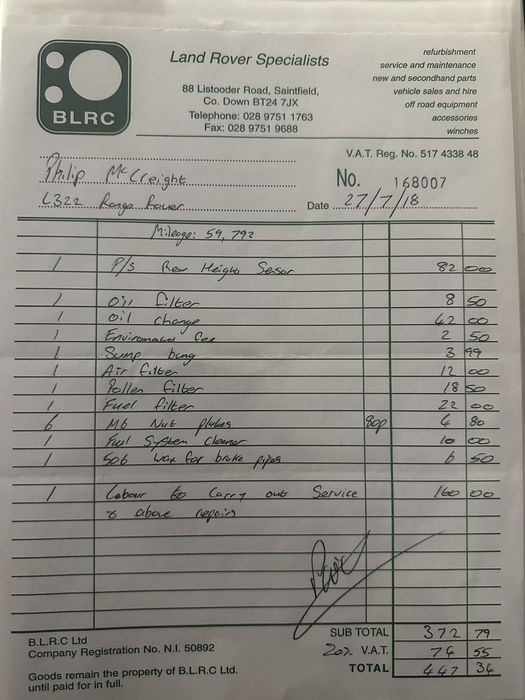 Land Rover Specialists
88 Listooder Road, Saintfield,
Co. Down BT24 7JX
Telephone: 028 9751 1763
Fax: 028 9751 9688
BLRC
refurbishment
service and maintenance
new and secondhand parts
vehicle sales and hire
off road equipment
accessories
winches
V.A.T. Reg. No. 517 4338 48
Philip McCreight
No. 168007
L322 Range Rover
Date 27/7/18
Mileage: 59,792
1 P/S Rear Height Sensor 82 00
1 Oil filter 8 50
1 Oil change 42 00
1 Environmental fee 2 50
1 Sump bung 3 99
1 Air filter 12 00
1 Pollen filter 18 50
1 Fuel filter 22 00
6 M6 Nut plates 80p 4 80
1 Fuel System Cleaner 10 00
1 Sob wax for brake pipes 6 50
1 Labour to Carry out Service 160 00
& above repairs
SUB TOTAL 372 79
20% V.A.T. 74 55
TOTAL 447 34
B.L.R.C Ltd
Company Registration No. N.I. 50892
Goods remain the property of B.L.R.C Ltd.
until paid for in full.